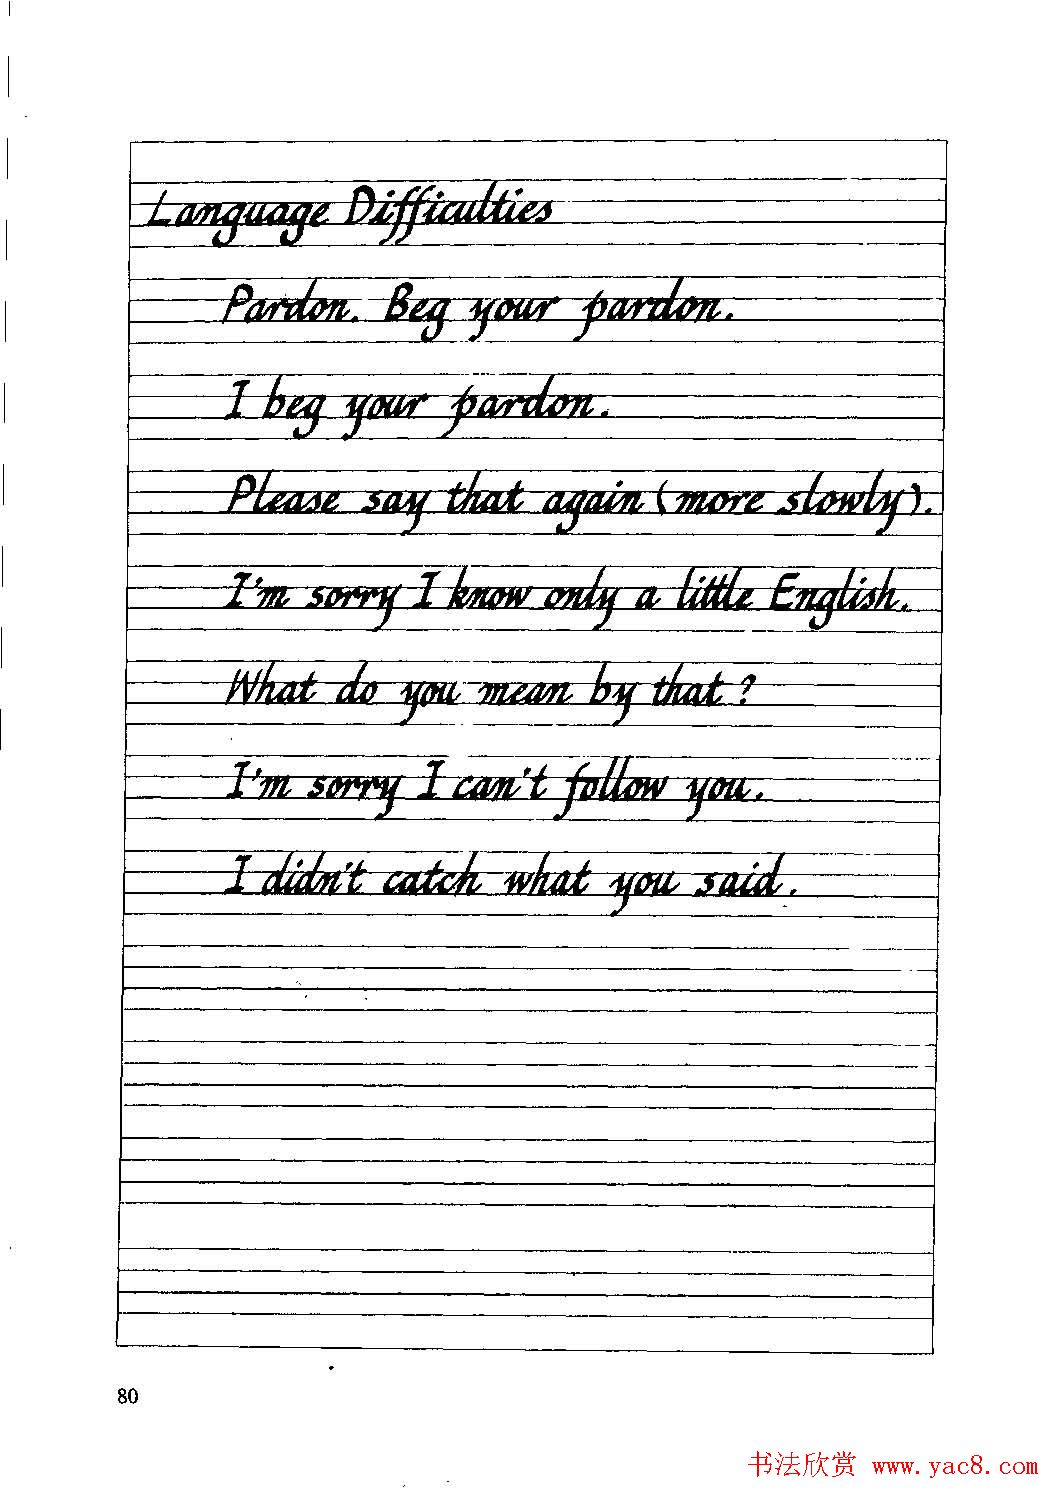 Language Difficulties
Pardon. Beg your pardon.
I beg your pardon.
Please say that again (more slowly).
I'm sorry I know only a little English.
What do you mean by that?
I'm sorry I can't follow you.
I didn't catch what you said.
80
书法欣赏 www.yac8.com